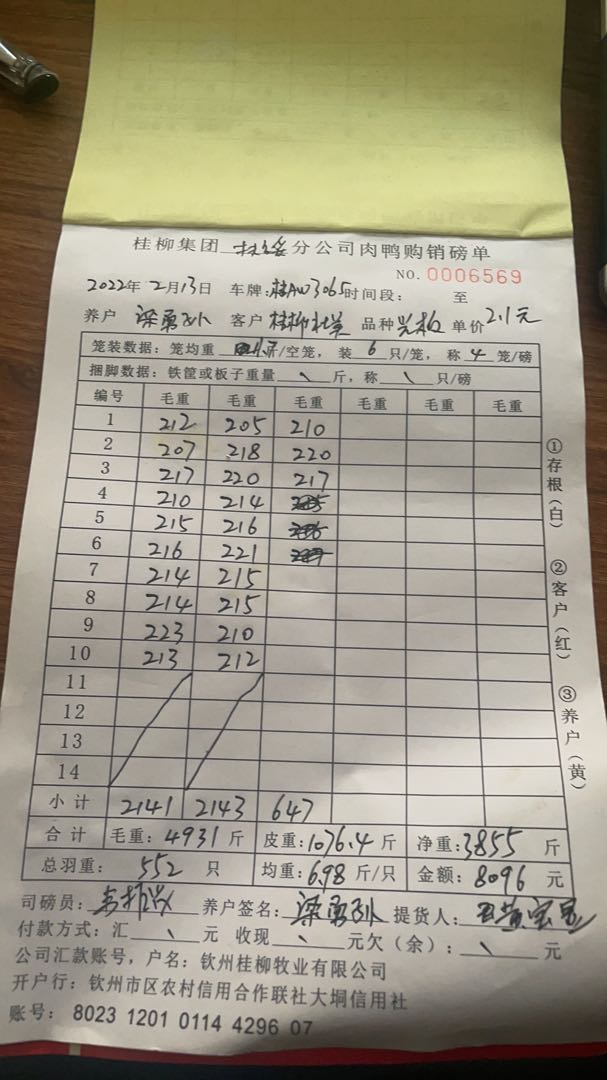 桂柳集团 分公司肉鸭购销磅单
NO. 0006569
2022年 2月13日 车牌:桂AW3065 时间段: 至
养户 梁勇 客户 桂柳 品种 单价 2.1元
笼装数据: 笼均重 /空笼, 装 6 只/笼, 称 4 笼/磅
捆脚数据: 铁筐或板子重量 \ 斤, 称 \ 只/磅
编号 毛重 毛重 毛重 毛重 毛重
1 212 205 210
2 207 218 220
3 217 220 217
4 210 214
5 215 216
6 216 221
7 214 215
8 214 215
9 223 210
10 213 212
11
12
13
14
小计 2141 2143 647
合计 毛重: 4931 斤 皮重: 1076.4 斤 净重: 3855 斤
总羽重: 552 只 均重: 6.98 斤/只 金额: 8096 元
司磅员: 养户签名: 梁勇 提货人:
付款方式: 汇 \ 元 收现 \ 元欠(余): \ 元
公司汇款账号, 户名: 钦州桂柳牧业有限公司
开户行: 钦州市区农村信用合作联社大垌信用社
账号: 8023 1201 0114 4296 07
①存根(白)
②客户(红)
③养户(黄)